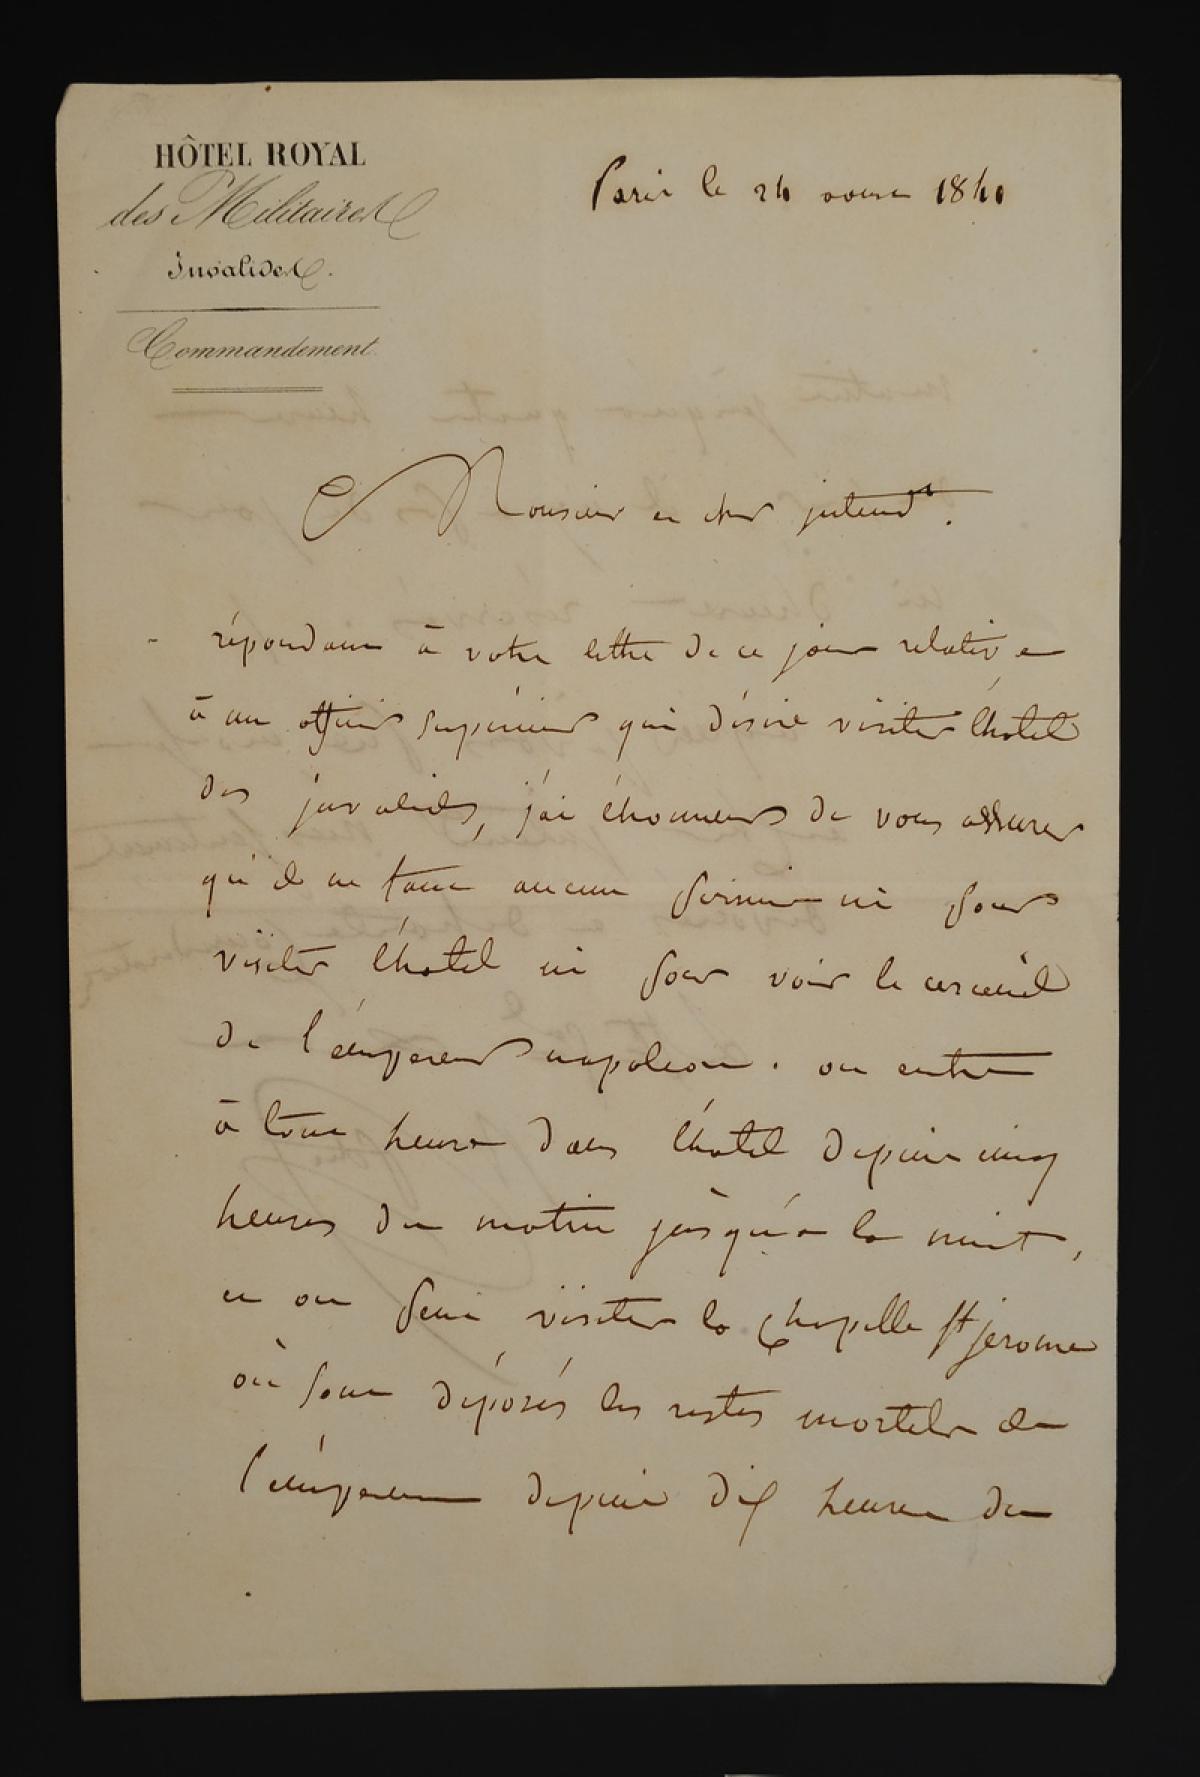 HÔTEL ROYAL
des Militaires
Invalides.
Commandement
Paris le 24 1841
Monsieur et cher intend<sup>t</sup>.
répondant à votre lettre de ce jour relative
à un officier supérieur qui désire visiter l'hotel
des invalides, j'ai l'honneur de vous assurer
qu'il ne faut aucune permission ni pour
visiter l'hotel ni pour voir le cercueil
de l'empereur napoleon. on entre
à toute heure dans l'hotel depuis cinq
heures du matin jusqu'à la nuit,
et on peut visiter la chapelle St jerome
où sont déposés les restes mortels de
l'empereur depuis dix heures du